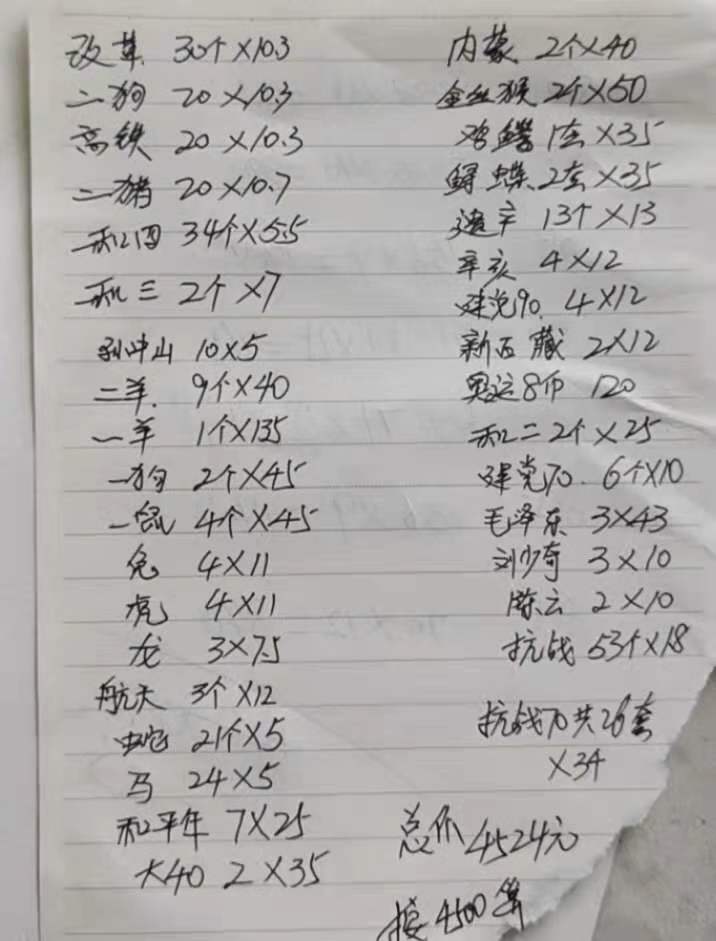 改革 30个×10.3
二狗 20×10.3
高铁 20×10.3
二猪 20×10.7
和四 34个×5.5
和三 2个×7
孙中山 10×5
二羊 9个×40
一羊 1个×135
一狗 2个×45
一鼠 4个×45
兔 4×11
虎 4×11
龙 3×7.5
航天 3个×12
蛇 21个×5
马 24×5
和平年 7×25
大40 2×35
内蒙 2个×40
金丝猴 2个×50
鸡鳄 1套×35
鲟蝶 2套×35
建辛 13个×13
辛亥 4×12
建党90 4×12
新西藏 2×12
奥运8币 120
和二 2个×25
建党70 6个×10
毛泽东 3×43
刘少奇 3×10
陈云 2×10
抗战 53个×18
抗战70共26套
×34
总价 4524元
按4500算